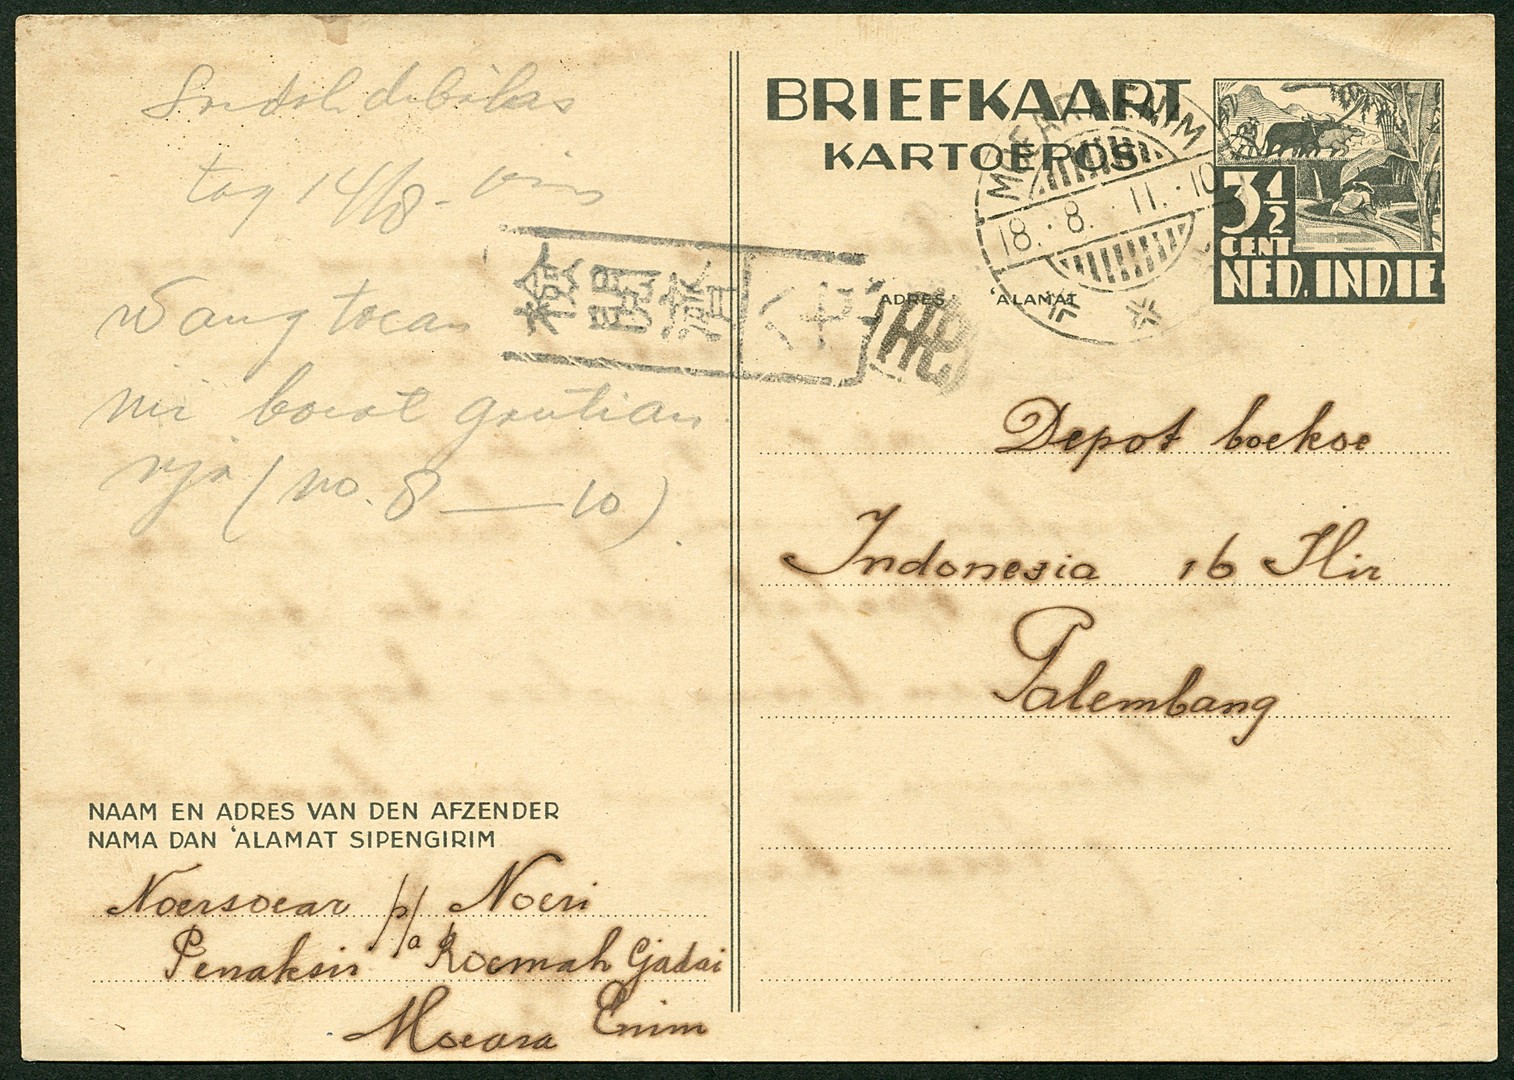 Soedah dibalas
tag 14/8 - 
Wang toean
boeat gantian
nja (no. 8 — 10)
BRIEFKAART
KARTOEPOS
MOEARAENIM
18. 8. 11. 10
3 1/2
CENT
NED. INDIE
檢閲濟
ADRES 'ALAMAT
Depot boekoe
Indonesia 16 Ilir
Palembang
NAAM EN ADRES VAN DEN AFZENDER
NAMA DAN 'ALAMAT SIPENGIRIM
Noersoear p/a Noeri
Penaksir Roemah Gjadai
Moeara Enim